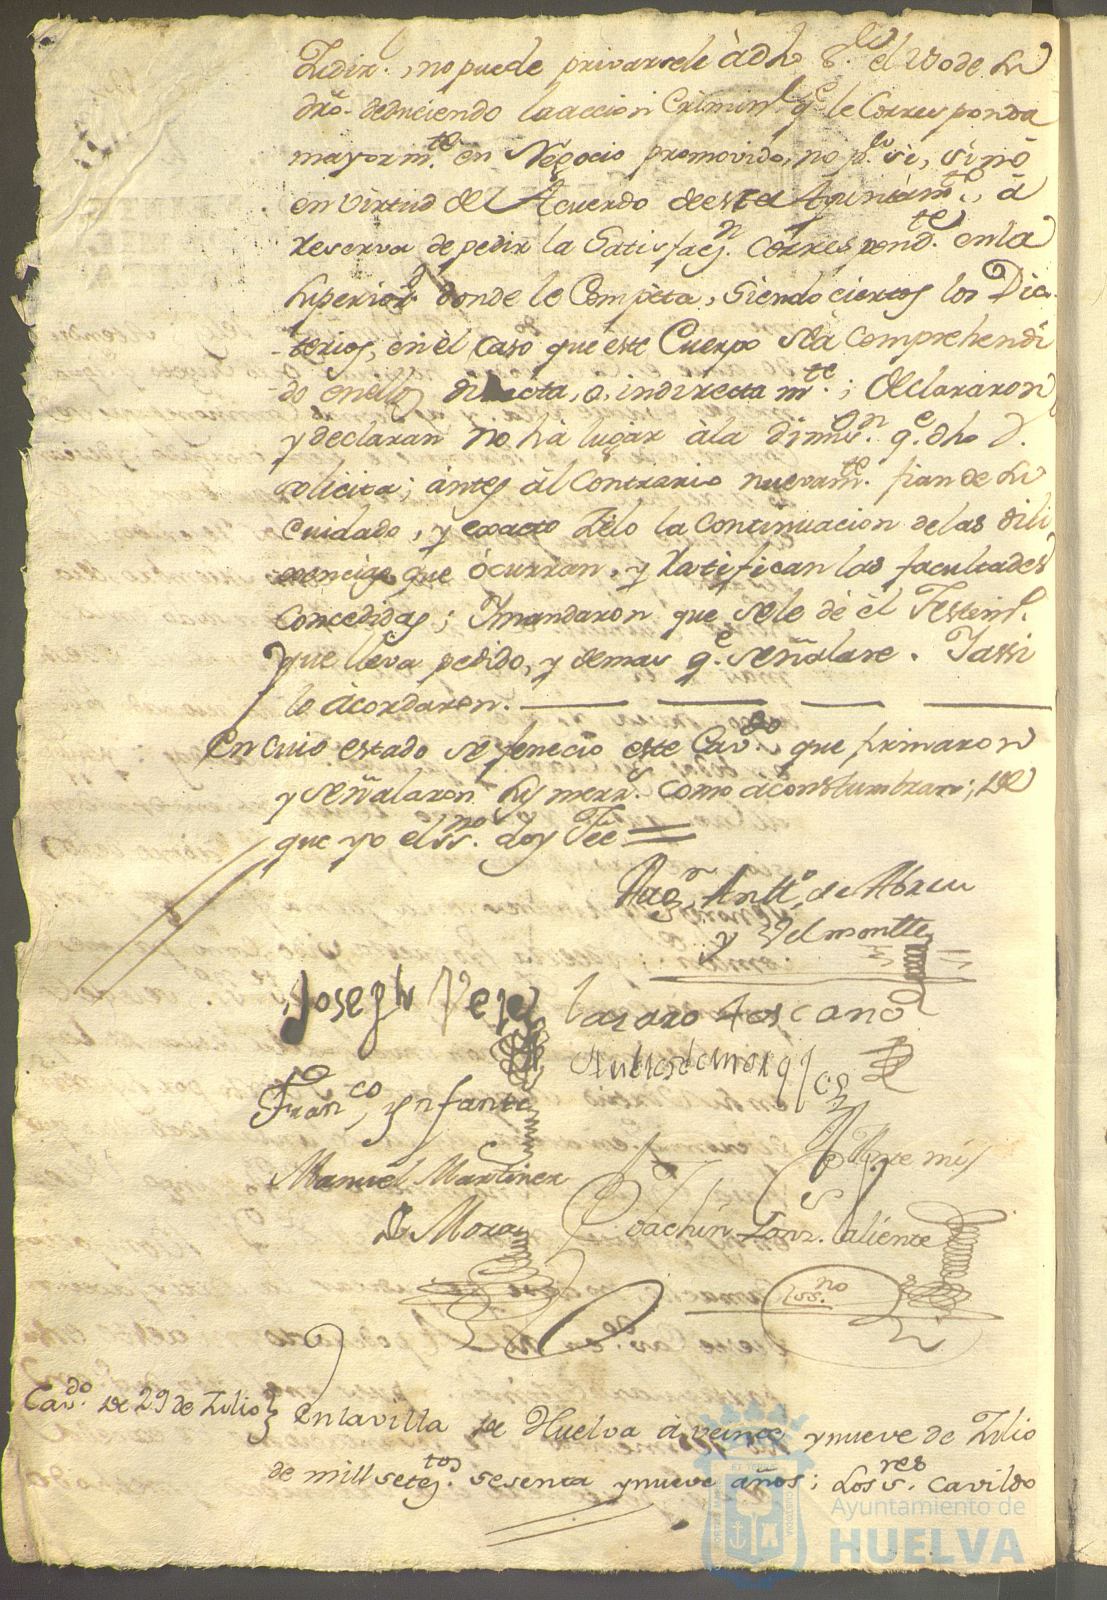 no puede privarsele à dho S.or el Vso de su
dro. deduciendo la accion Criminl. q.e le Corresponda
mayorm.te en Negocio promovido, no p.r si, sinò
en virtud del Acuerdo de este Ayuntam.to, à
reserva de pedir la Satisfacn. Correspond.te en la
superiord. donde le Competa, Siendo ciertos los Dic-
terios, en èl caso que este Cuerpo sea Comprehendi
do en ellos directa, o, indirectam.te; declararon
y declaran no hà lugar àla dimisn. q.e dho D.
solicita; ántes àl Contrario nuevam.te fian de su
cuidado, y exacto Zelo la Continuacion de las dili
xencias que òcurran, y Ratifican las facultades
concedidas; Ymandaron que sele dè èl Testim.
que lleva pedido, y demas q.e señalare. Yassi
lo àcordaron.
En cuio estado se feneciò este Cav.do que firmaron
y señalaron sus merzs. como acostumbran; de
que yo el ss.no doy Fee =
Ant.o de Abreu
y Velmontte
Joseph Vega
Lazaro Toscano
Fran.co Ynfante
Manuel Martinez
de Mora
Ante mi
Joachin Gonz. Caliente
ss.no
Cav.do de 29 de Iulio
En la villa de Huelva à veinte y nueve de Iulio
de mill setez.tos sesenta y nueve años; Los s.res Cavildo
Ayuntamiento de
HUELVA